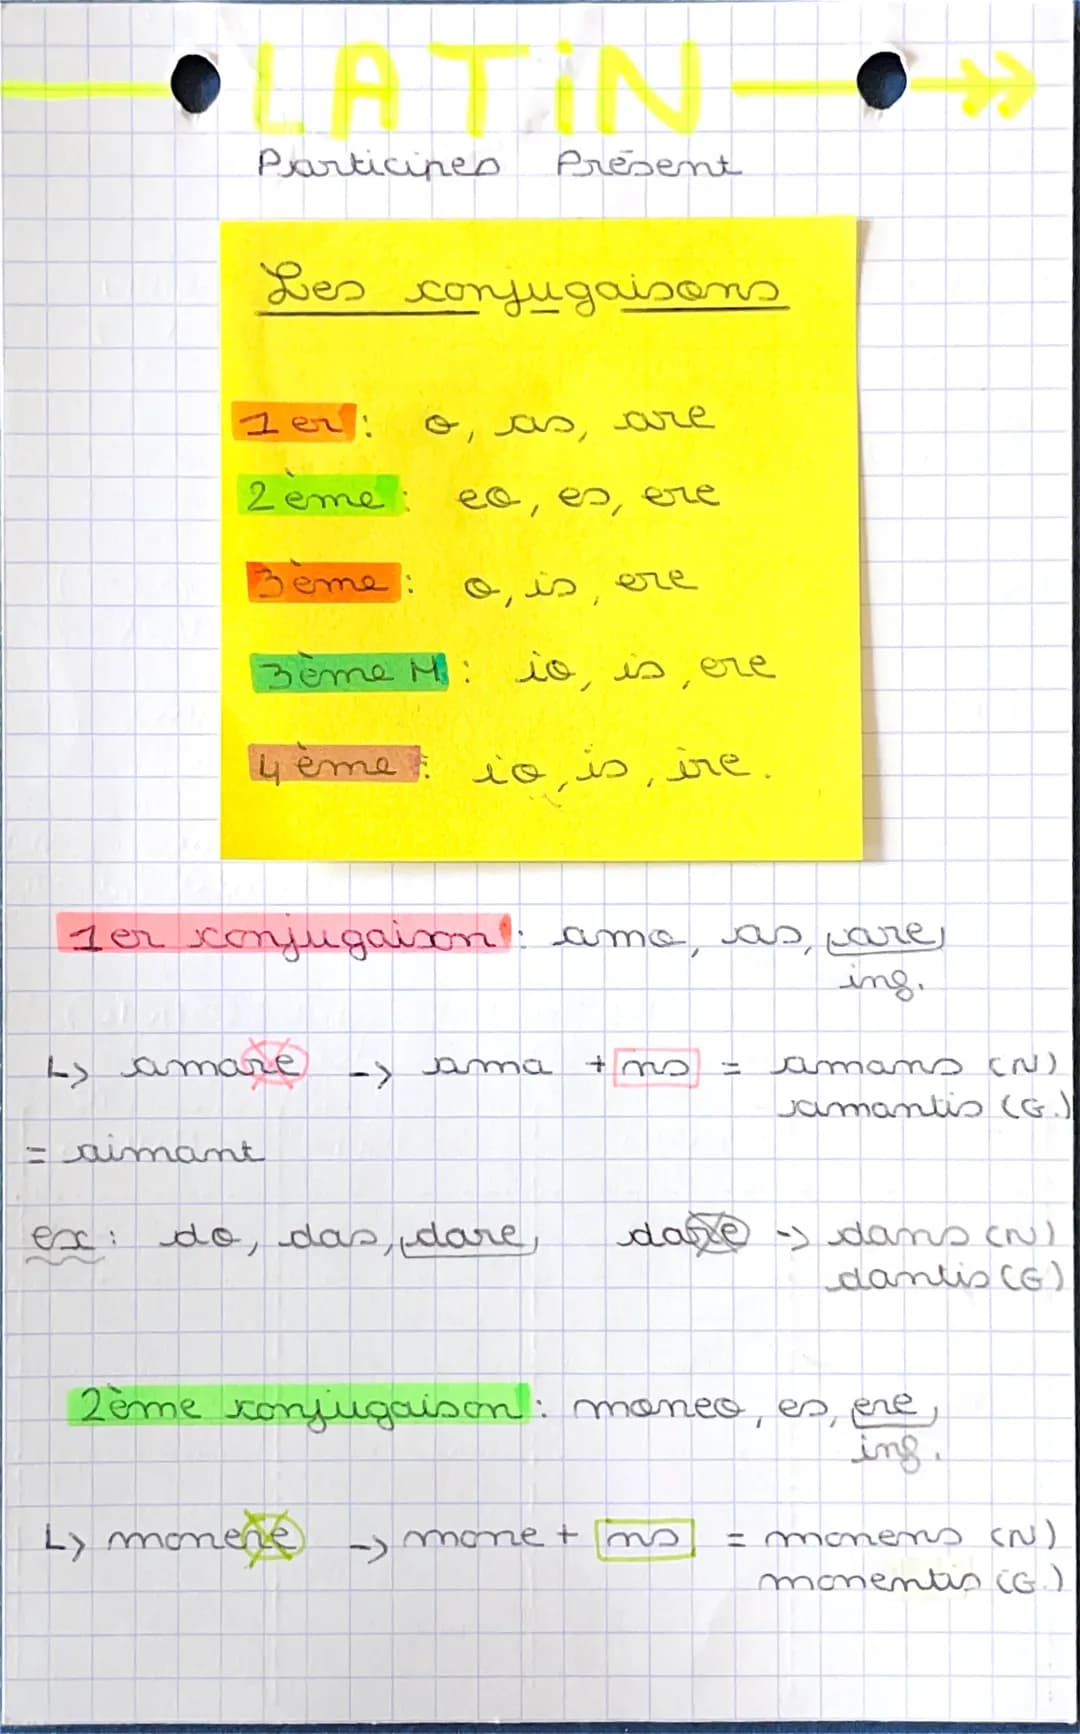 LATIN
Participes Présent
Les conjugaisons
1er : o, as, are
2ème : eo, es, ere
3ème : o, is, ere
3ème M : io, is, ere
4ème : io, is, ire.
1er conjugaison : amo, as, are,
inf.
↳ amare -> ama + ns = amans (N)
amantis (G.)
= aimant
ex : do, das, dare, dare -> dans (N)
dantis (G)
2ème conjugaison : moneo, es, ere,
inf.
↳ monere -> mone + ns = monens (N)
monentis (G.)